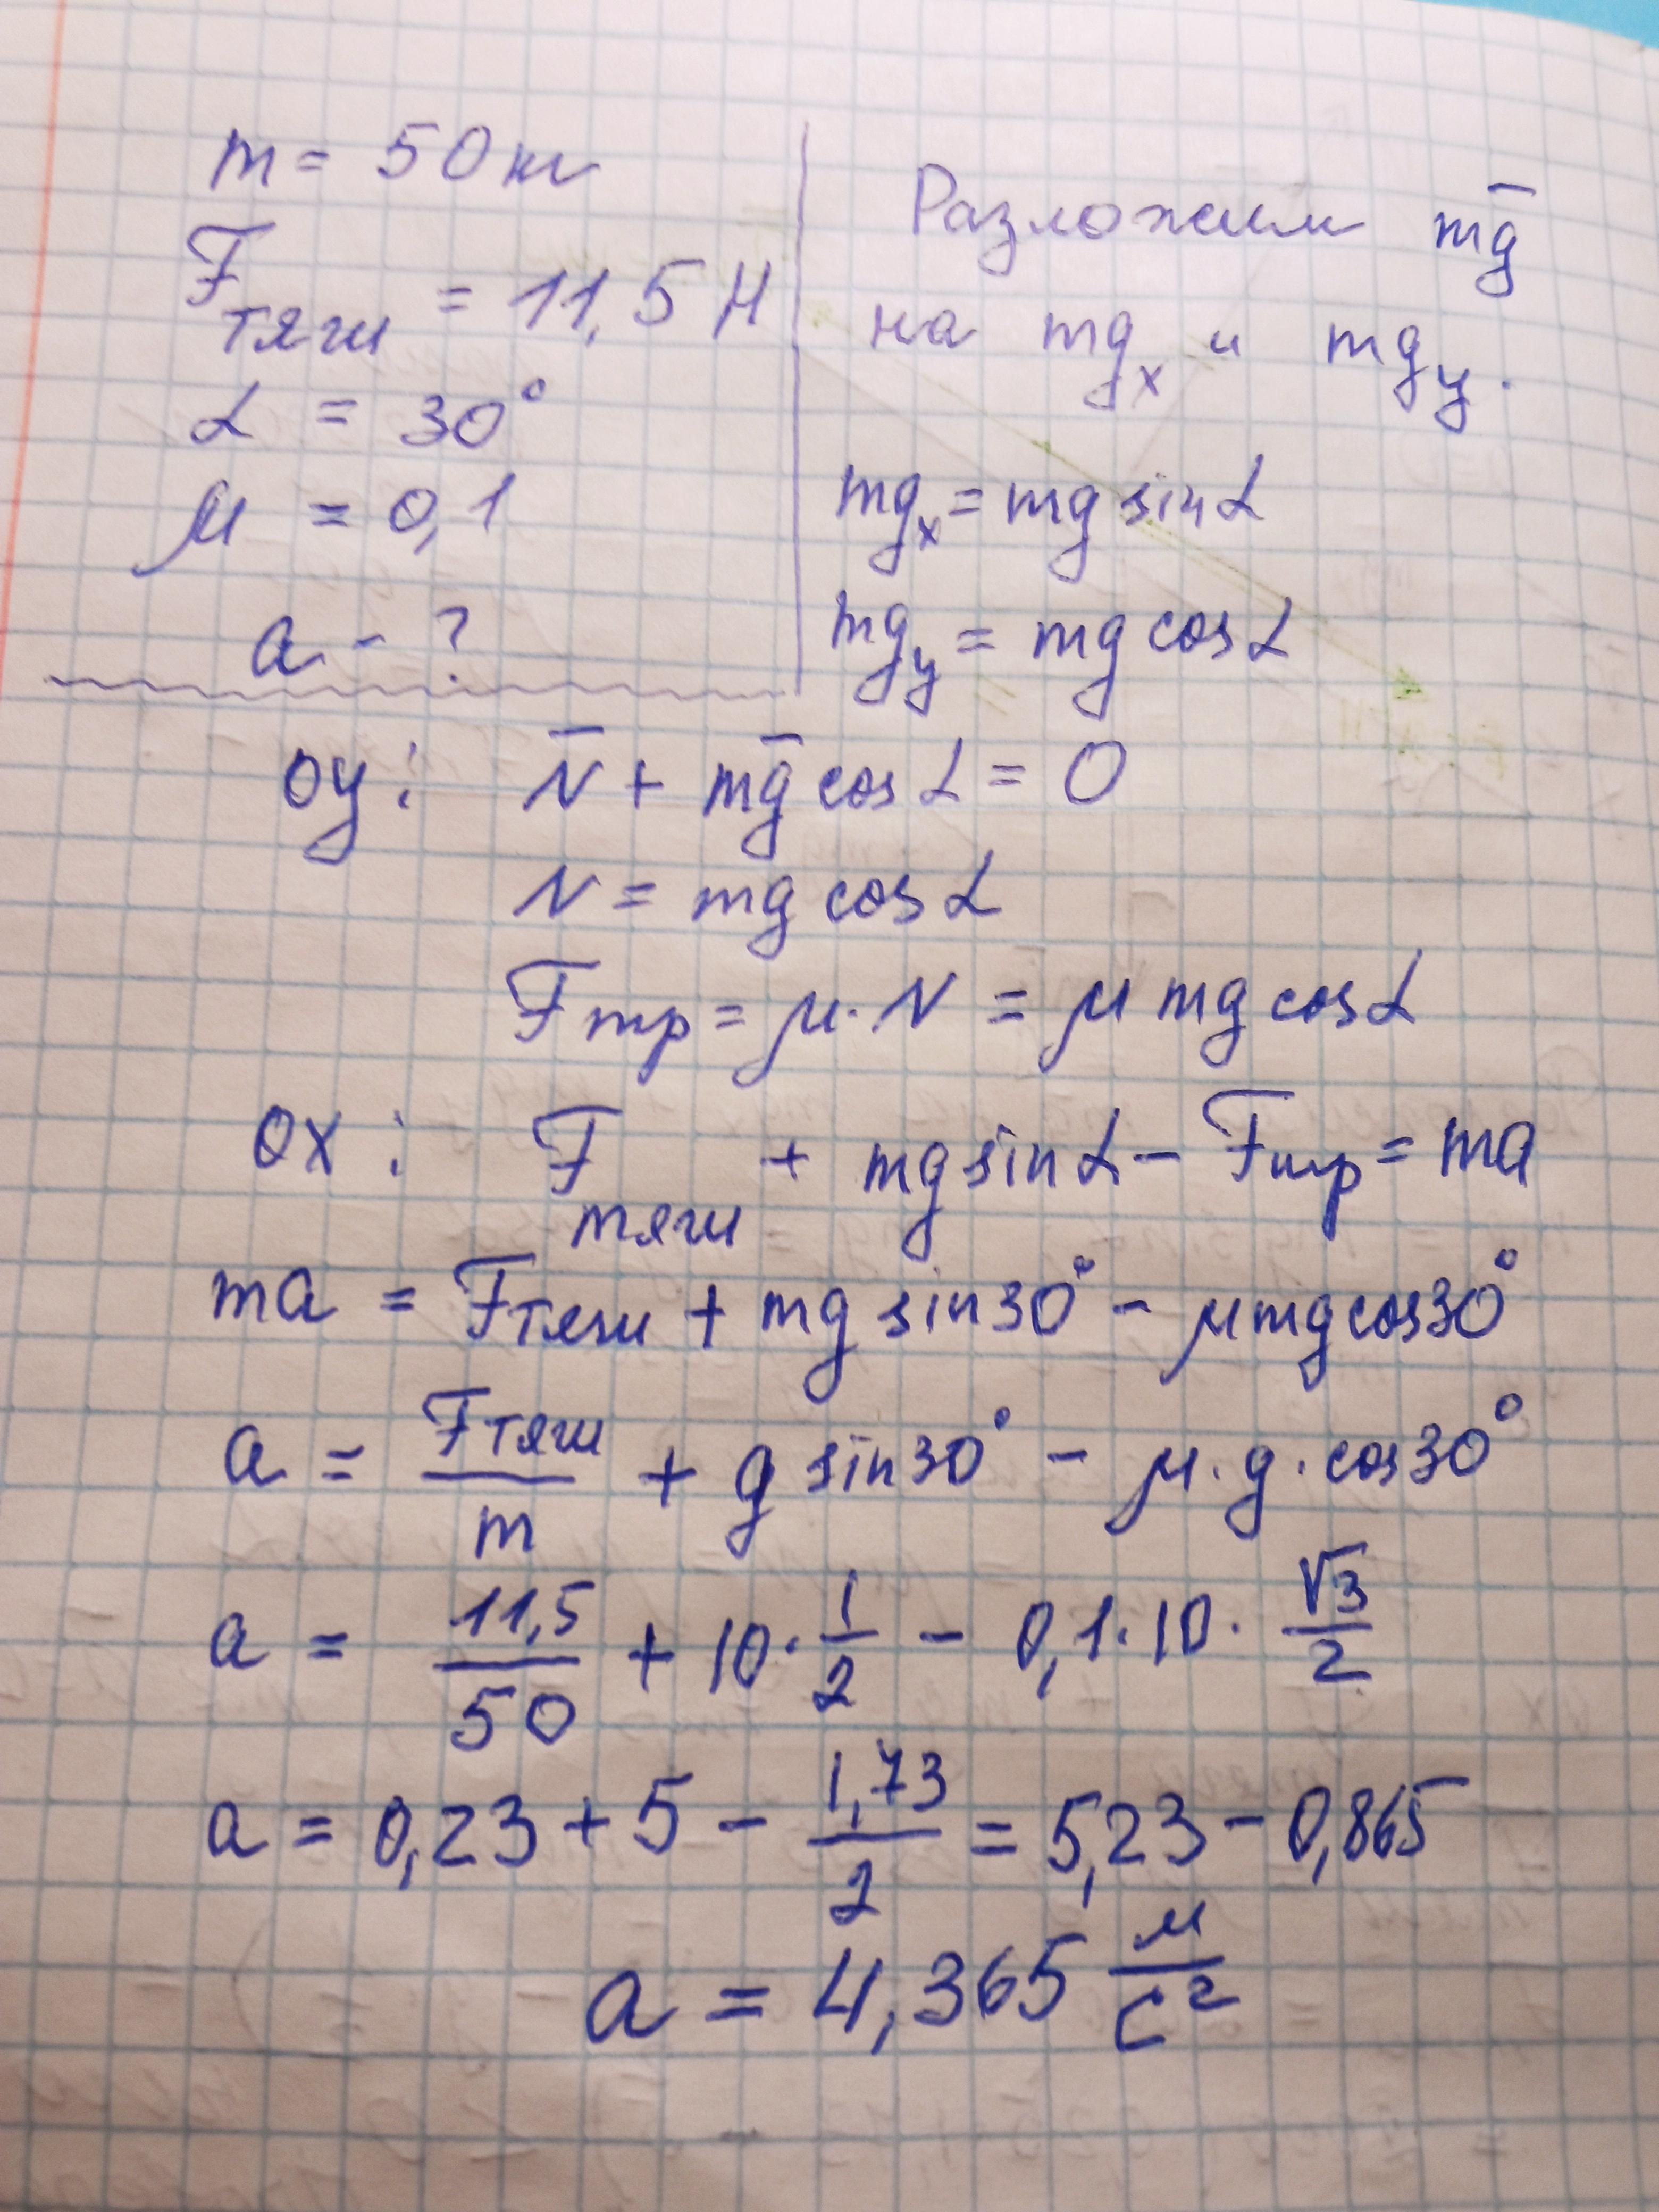 m = 50 кг
Fтяги = 11,5 Н
α = 30°
μ = 0,1
a - ?
Разложим m̅g̅
на mgₓ и mgᵧ.
mgₓ = mg sin α
mgᵧ = mg cos α
оу: N̅ + m̅g̅ cos α = 0
N = mg cos α
Fтр = μ · N = μ mg cos α
ох: Fтяги + mg sin α - Fтр = ma
ma = Fтяги + mg sin 30° - μ mg cos 30°
a = Fтяги/m + g sin 30° - μ · g · cos 30°
a = 11,5/50 + 10 · 1/2 - 0,1 · 10 · √3/2
a = 0,23 + 5 - 1,73/2 = 5,23 - 0,865
a = 4,365 м/с²